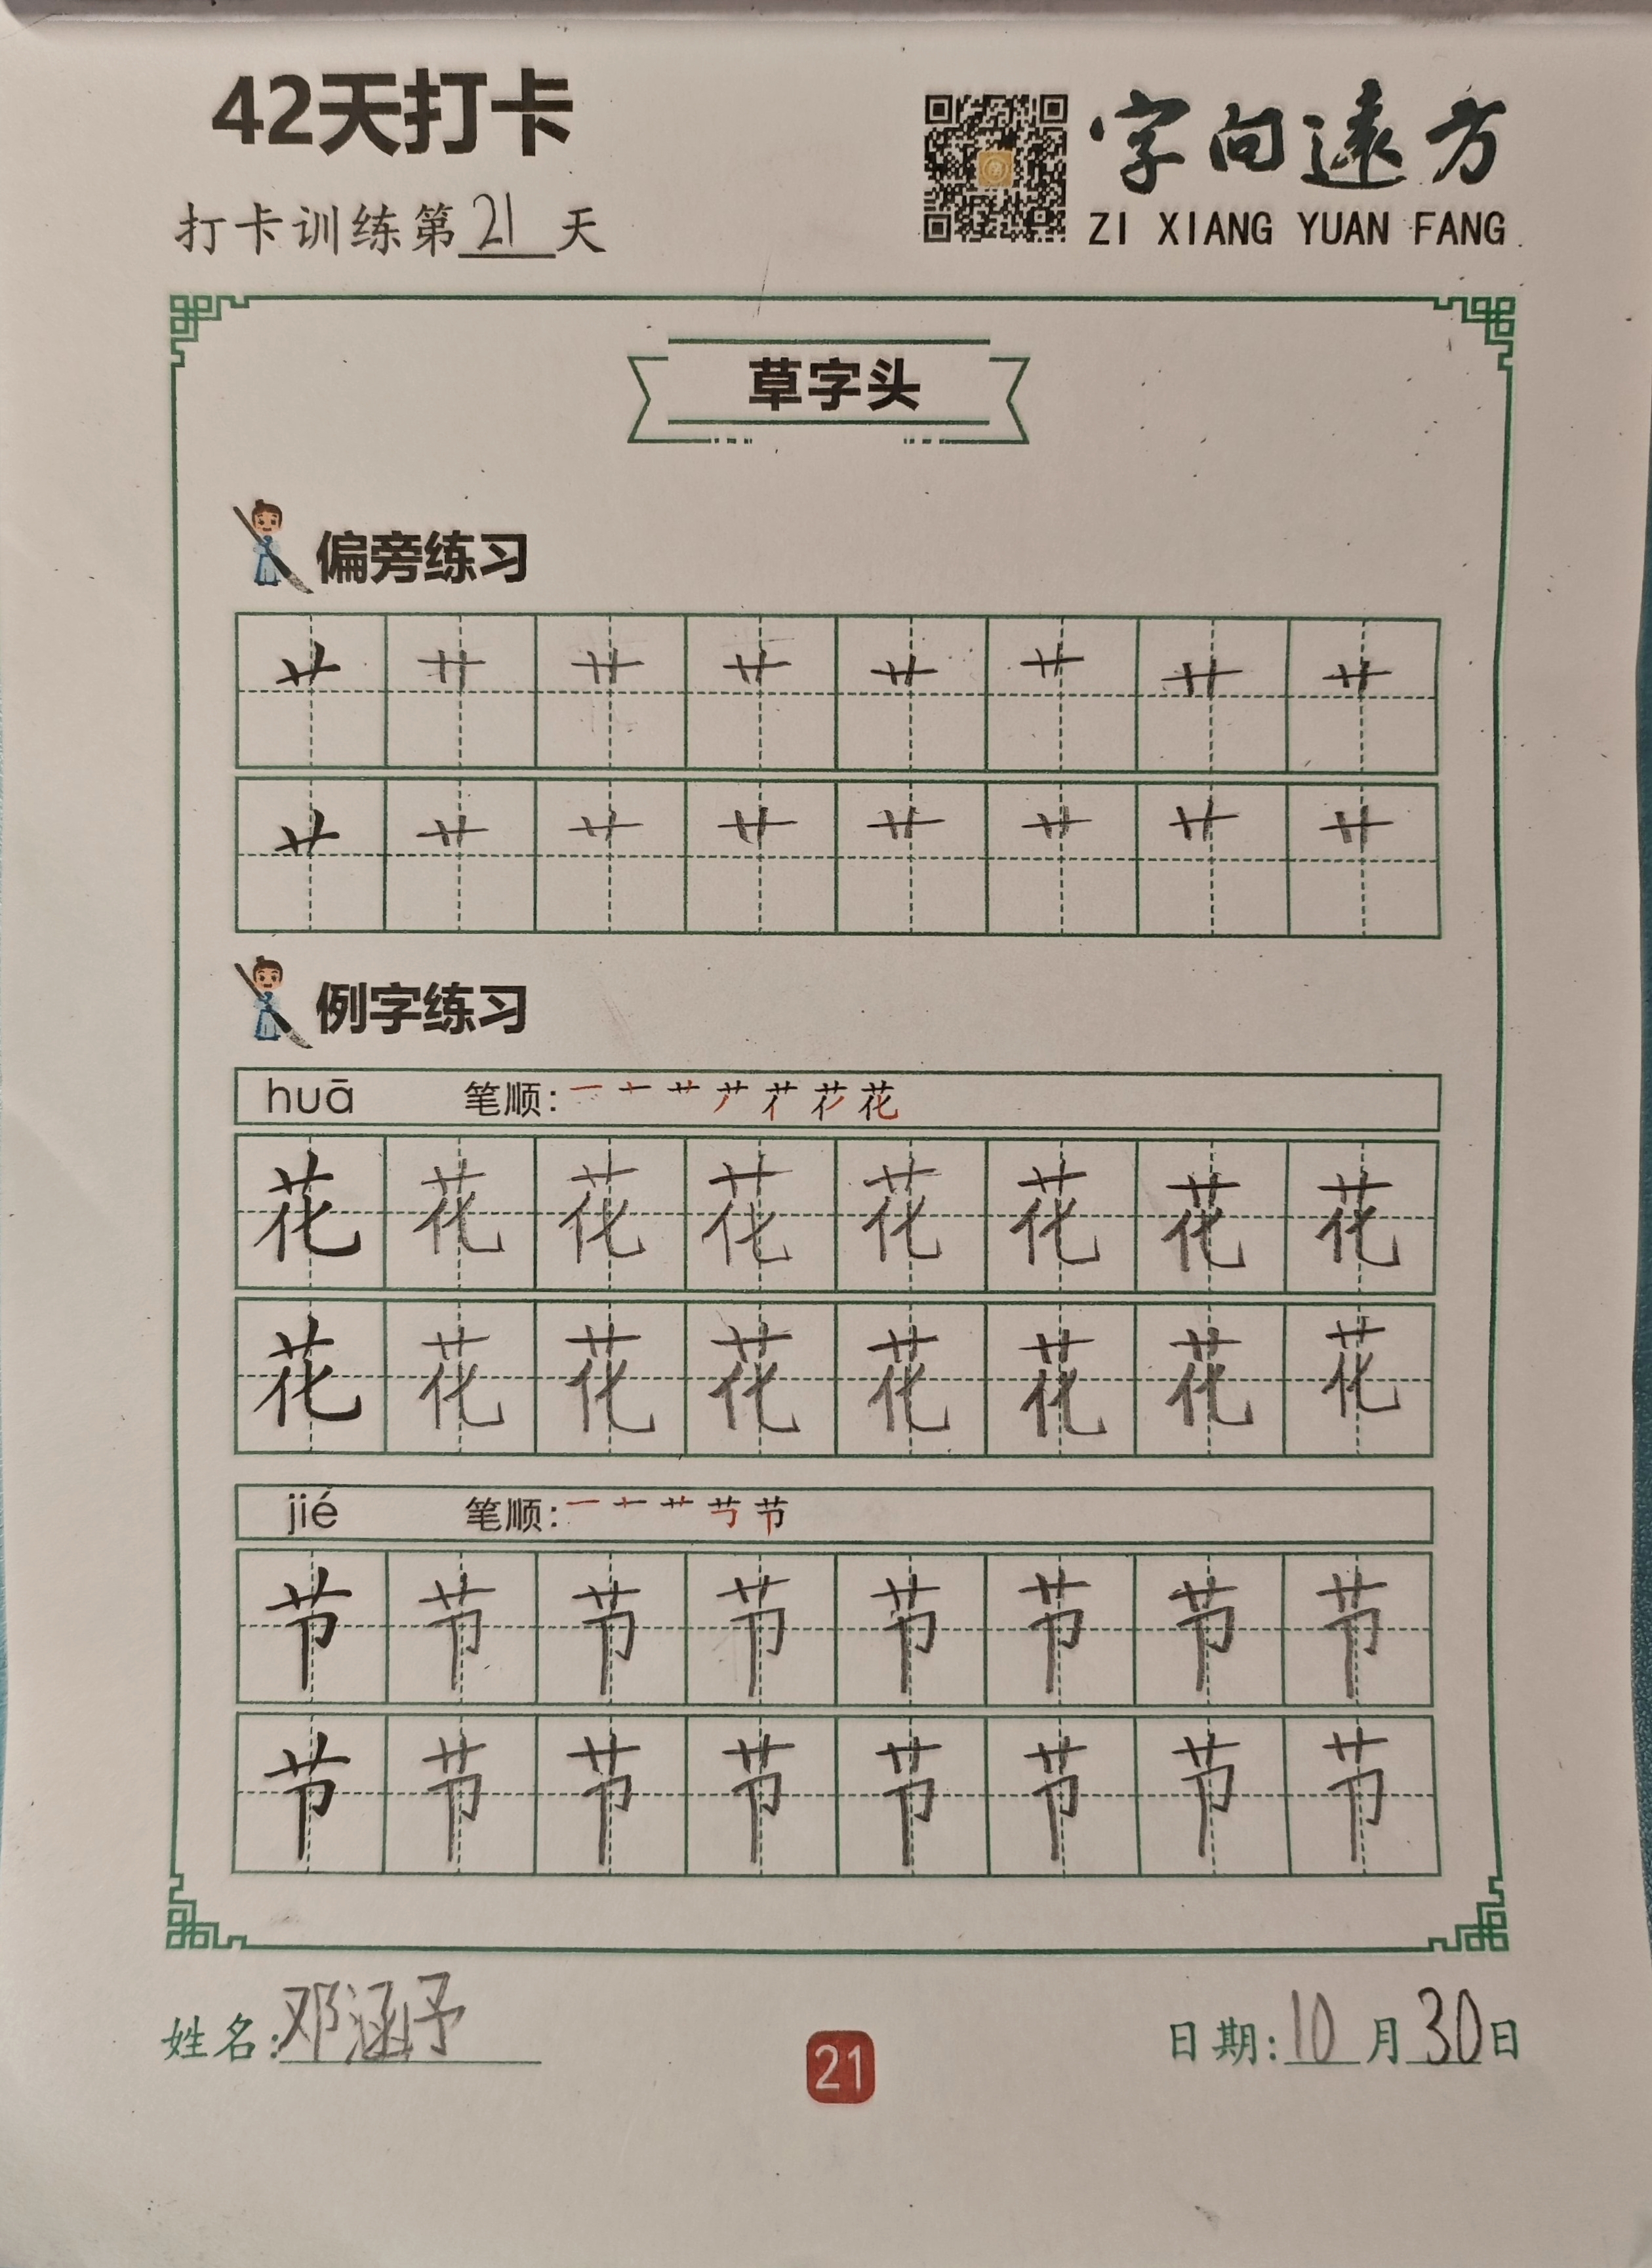 42天打卡
字向遠方
打卡训练第21天
ZI XIANG YUAN FANG
草字头
偏旁练习
艹 艹 艹 艹 艹 艹 艹 艹
艹 艹 艹 艹 艹 艹 艹 艹
例字练习
huā 笔顺:
花 花 花 花 花 花 花 花
花 花 花 花 花 花 花 花
jié 笔顺:
节 节 节 节 节 节 节 节
节 节 节 节 节 节 节 节
姓名:邓涵予
21
日期:10月30日